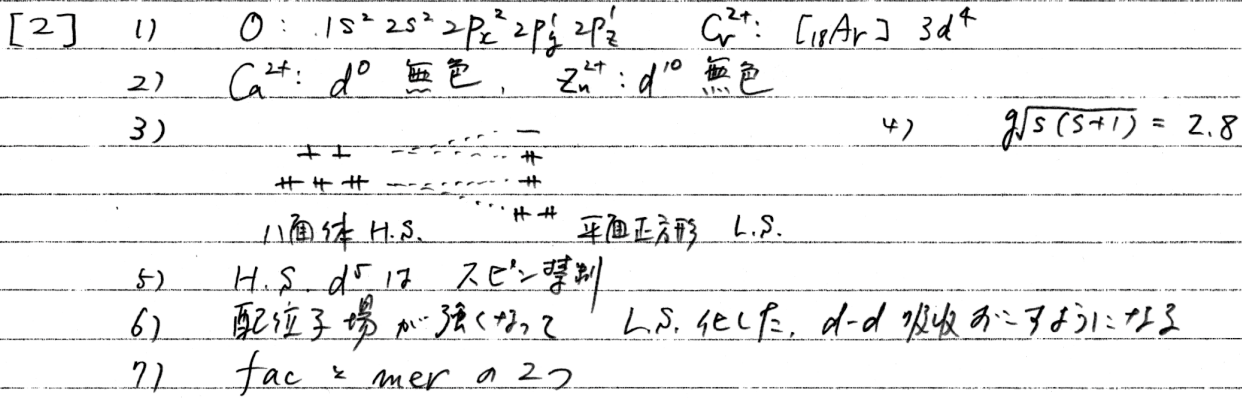 [2] 1) O: 1s² 2s² 2px² 2py¹ 2pz¹ Cr²⁺: [₁₈Ar] 3d⁴
2) Ca²⁺: d⁰ 無色, Zn²⁺: d¹⁰ 無色
3) 4) g√s(s+1) = 2.8
八面体 H.S. 平面正方形 L.S.
5) H.S. d⁵は スピン禁制
6) 配位子場が強くなって L.S. 化した. d-d 吸収おこすようになる
7) fac と mer の2つ